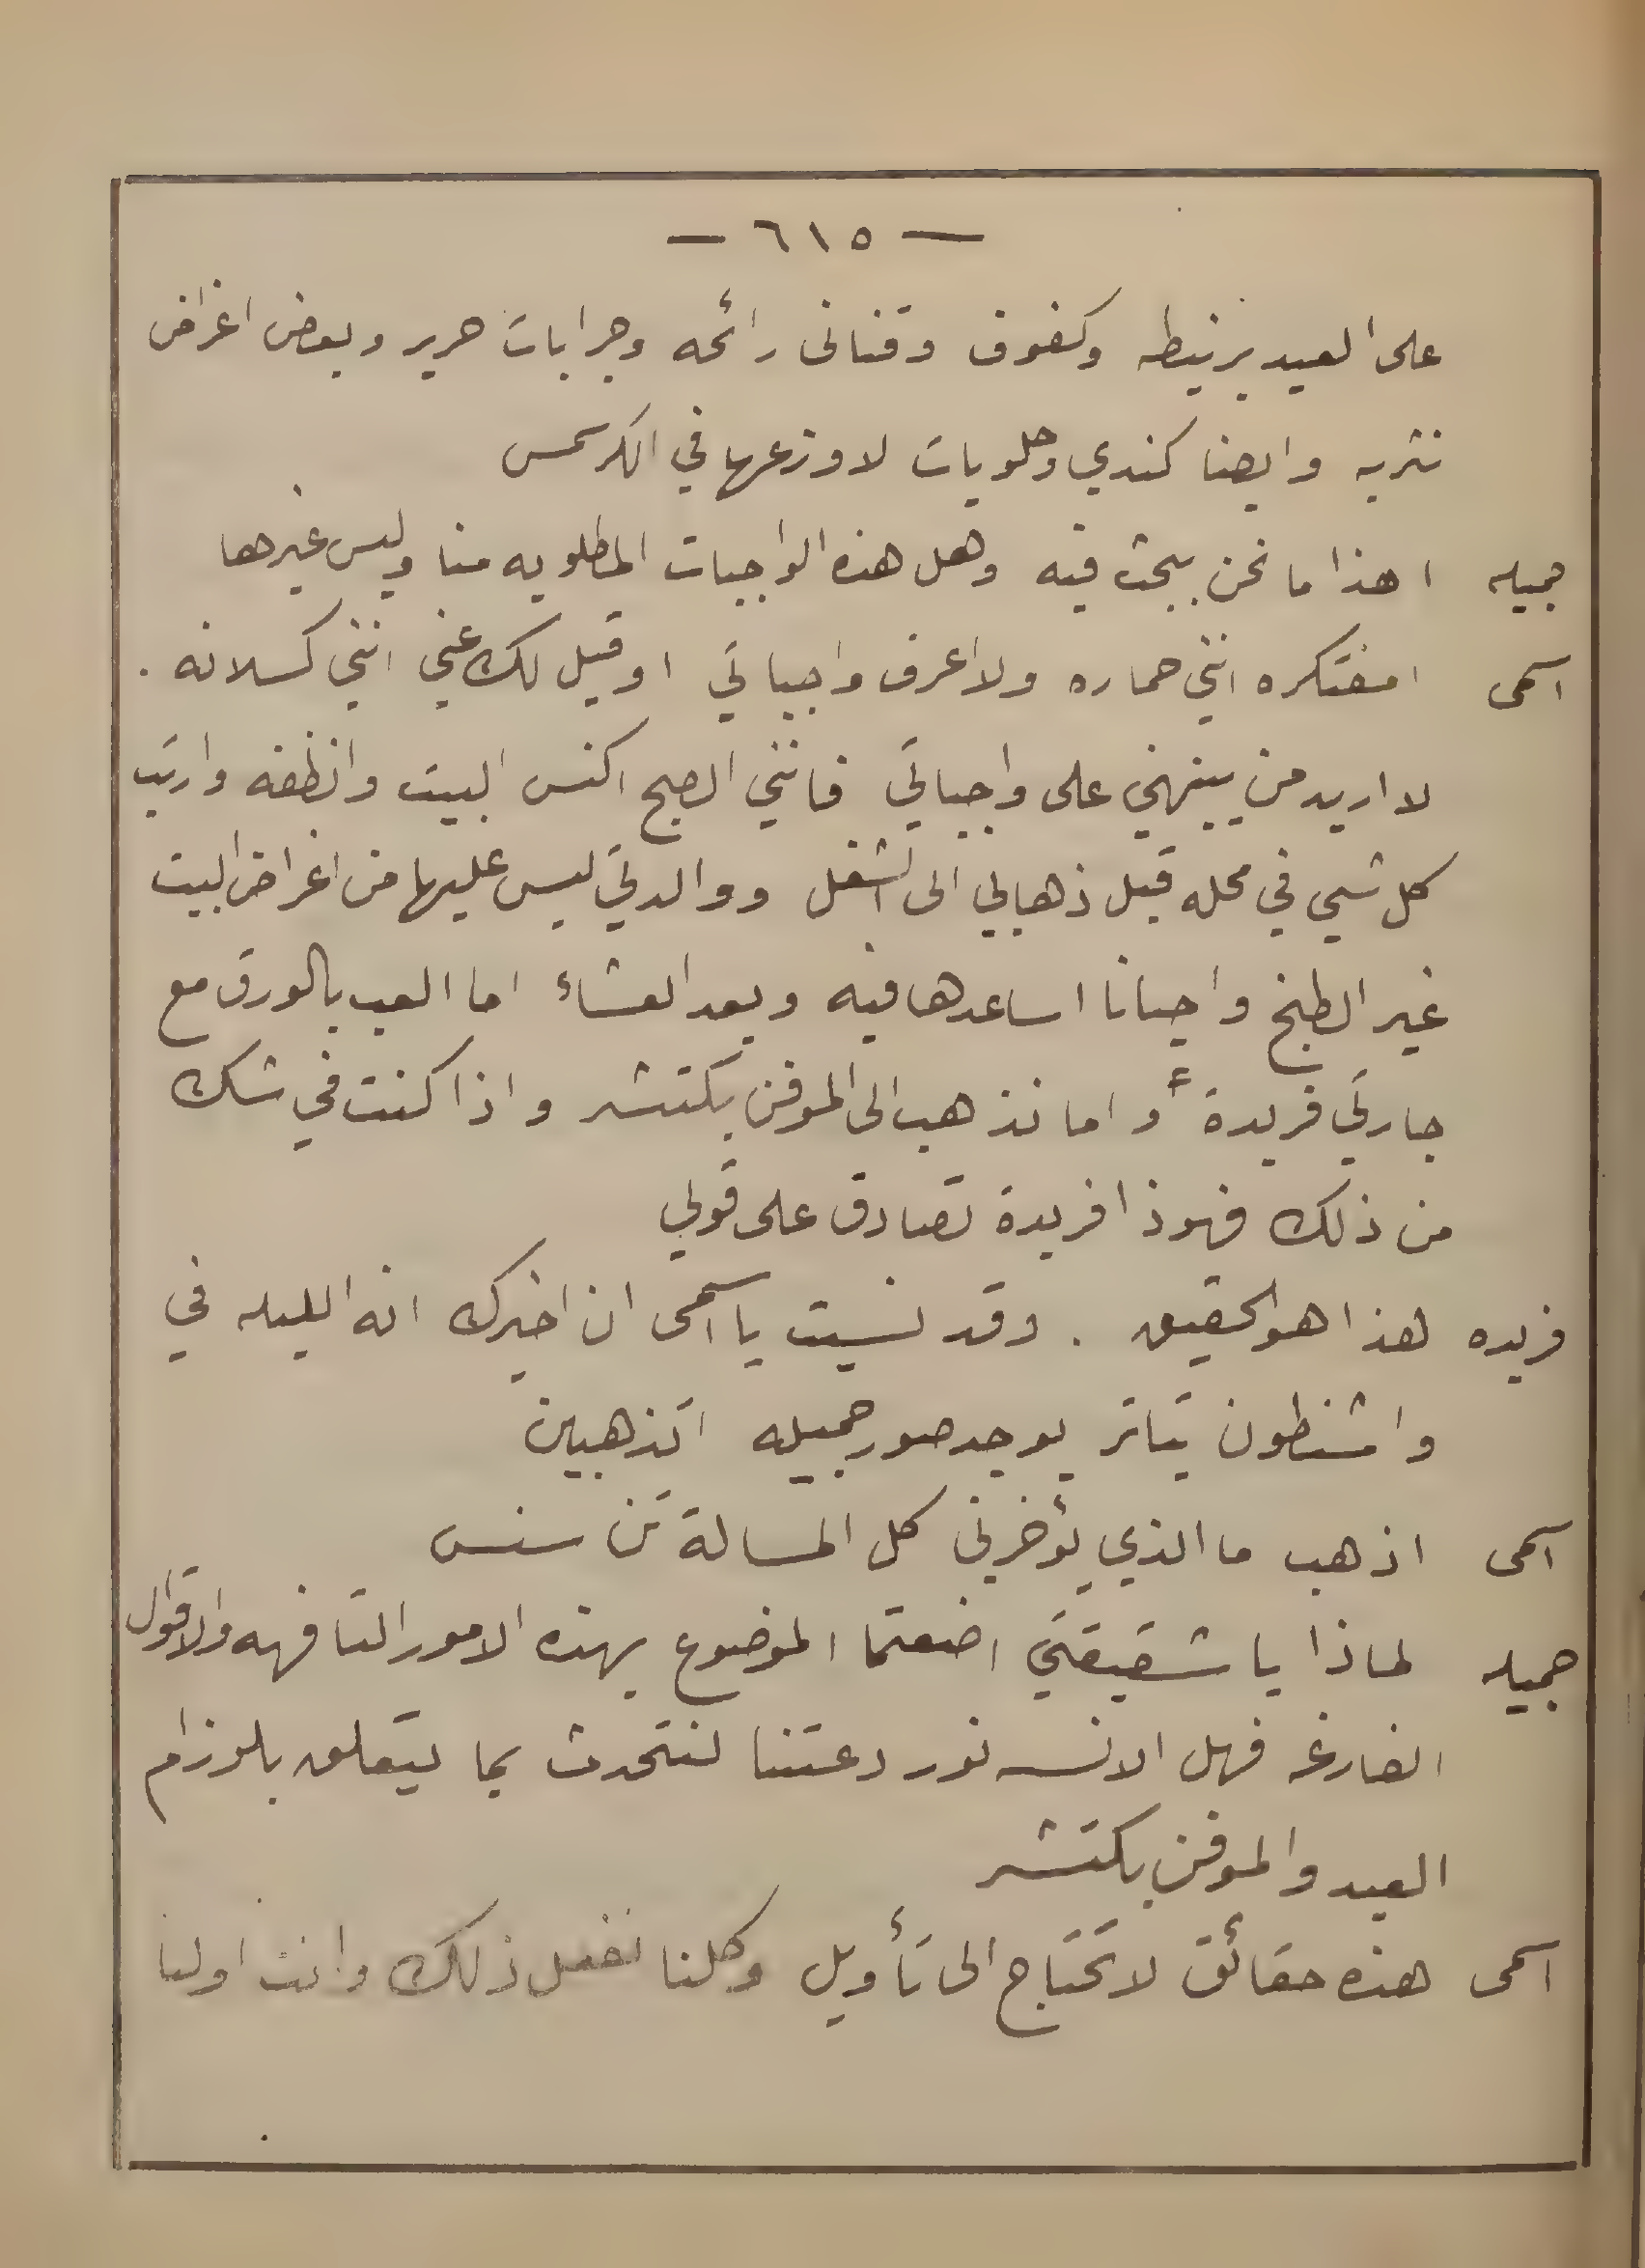 — ٦١٥ —
على العيد برنيطه وكفوف وقناني رائحه وجرابات حرير وبعض اغراض
نثريه وايضا كندي وحلويات لاوزعها في الكرسمس
جميله اهذا ما نحن ببحث فيه وهل هذه الواجبات المطلوبه منا وليس غيرها
اسمى امفتكره انني حماره ولا اعرف واجباتي او قيل لك عني انني كسلانه .
لا اريد من ينبهني على واجباتي فانني الصبح اكنس البيت وانظفه وارتب
كل شيي في محله قبل ذهابي الى الشغل ووالدتي ليس عليها من اغراض البيت
غير الطبخ واحيانا اساعدها فيه وبعد العشاء اما العب بالورق مع
جارتي فريدة أو اما نذهب الى الموفن بكتشر واذا كنت في شك
من ذلك فهوذا فريدة تصادق على قولي
فريده هذا هو الحقيق . وقد نسيت يا اسمى ان اخبرك انه الليله في
واشنطون تياتر يوجد صور جميله اتذهبين
اسمى اذهب ما الذي يؤخرني كل المسالة تن سنس
جميله لماذا يا شقيقتي اضعتما الموضوع بهذه الامور التافهه والاقوال
الفارغه فهل الانسه نور دعتنا لنتحدث بما يتعلق بلوزام
العيد والموفن بكتشر
اسمى هذه حقائق لا تحتاج الى تأويل وكلنا نفعل ذلك وانت اولنا